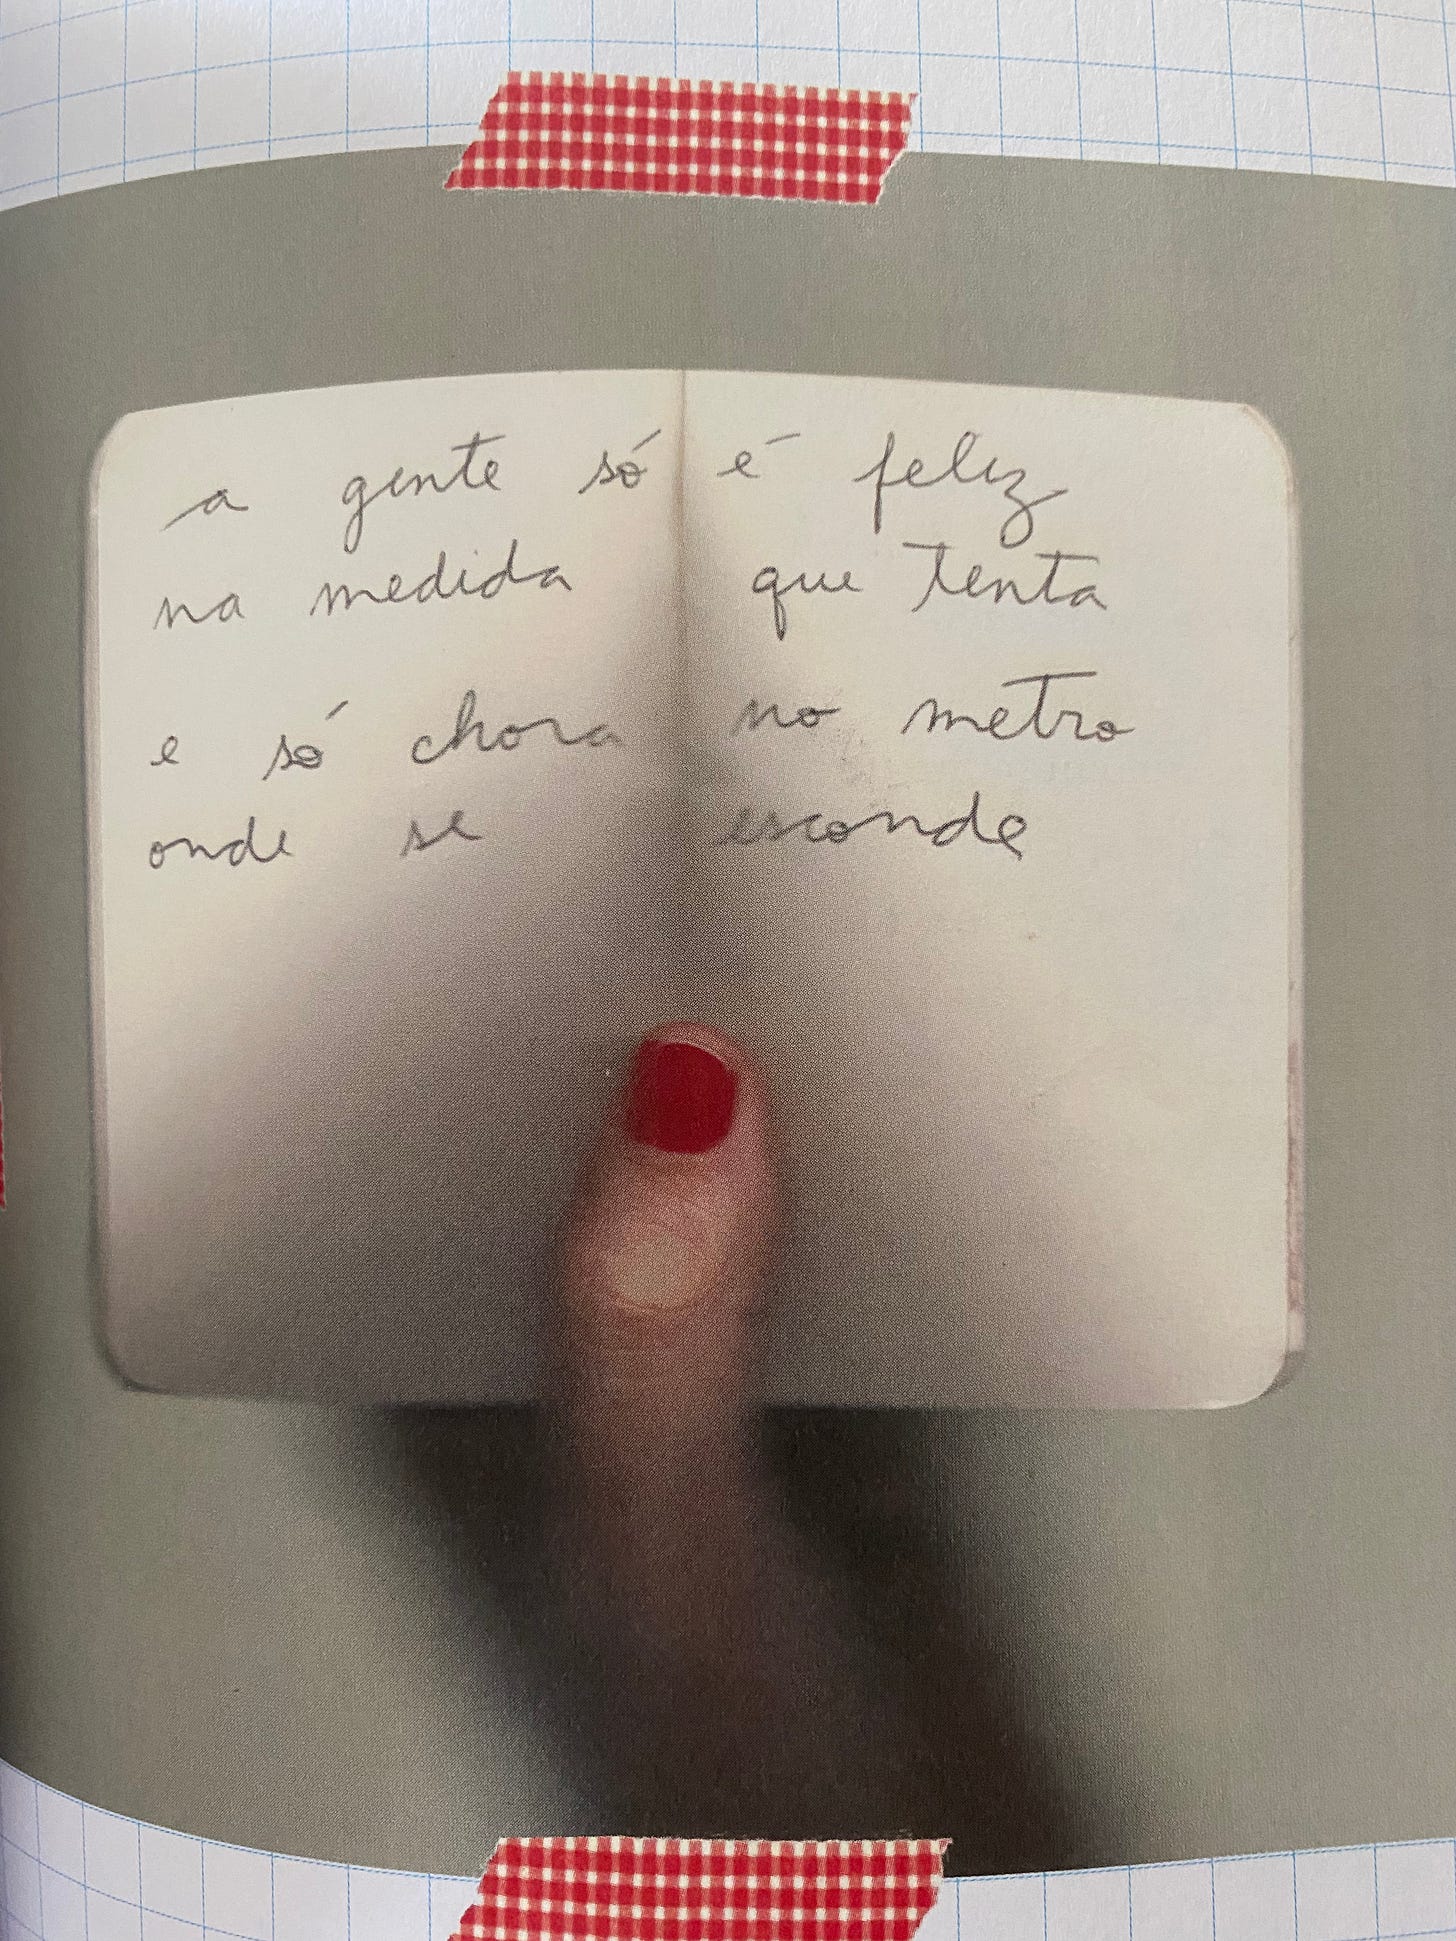 a gente só é feliz
na medida que tenta
e só chora no metro
onde se esconde